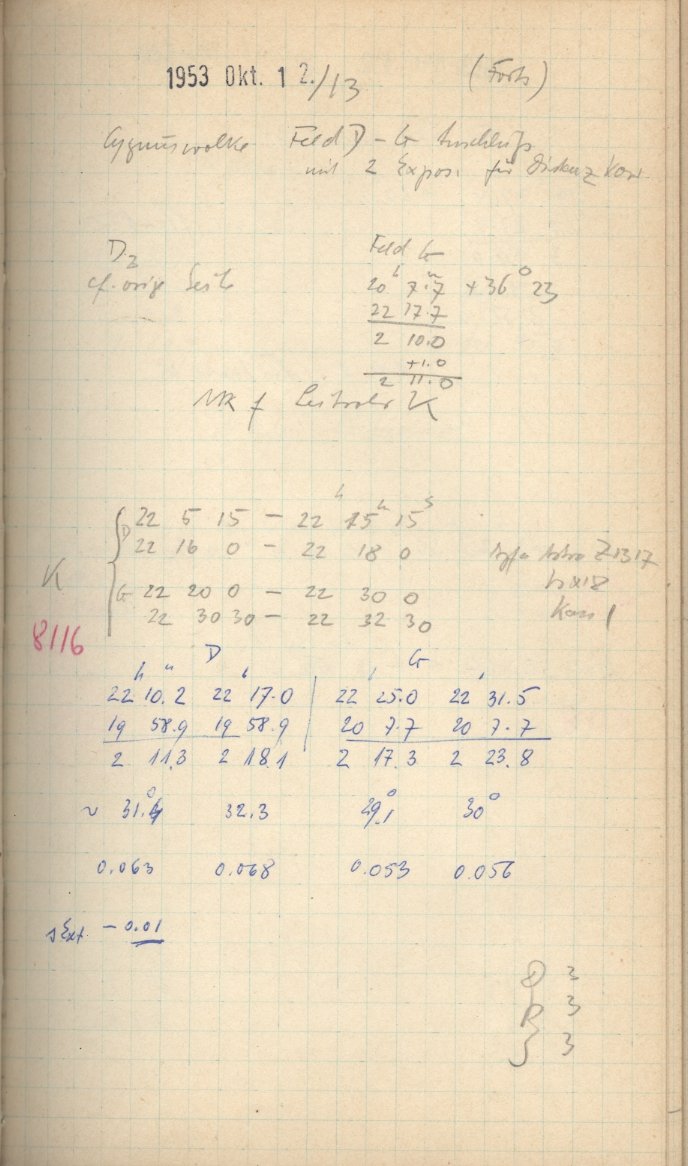 1953 Okt. 1 2./13 (Forts)
Cygnuswolke Feld D - G Anschluss
mit 2 Expos. für
D2 Feld G
cf. vorige Seite 20h 7.m7 +36° 23
22 17.7
2 10.0
+1.0
2 11.0
K
D 22 5 15 - 22h 15m 15s
22 16 0 - 22 18 0
K G 22 20 0 - 22 30 0
22 30 30 - 22 32 30
Agfa Astro Z1317
8116
D G
22h 10.m2 22h 17.0 22h 25.0 22h 31.5
19 58.9 19 58.9 20 7.7 20 7.7
2 11.3 2 18.1 2 17.3 2 23.8
~ 31.°4 32.3 29.°1 30°
0.063 0.068 0.053 0.056
Ext. - 0.01
3
3
3